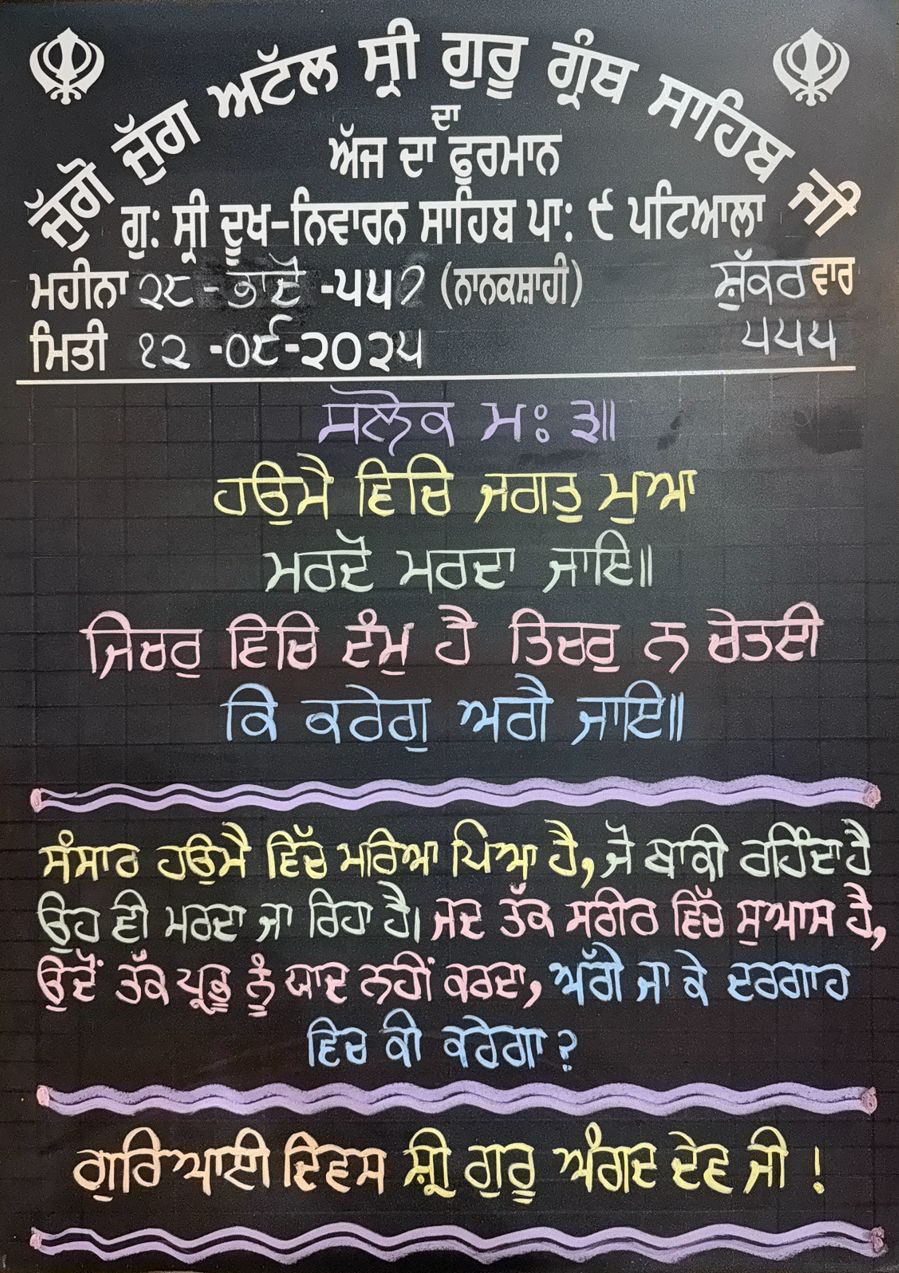 ਜੁੱਗੋ ਜੁੱਗ ਅਟੱਲ ਸ੍ਰੀ ਗੁਰੂ ਗ੍ਰੰਥ ਸਾਹਿਬ ਜੀ
ਦਾ
ਅੱਜ ਦਾ ਫੂਰਮਾਨ
ਗੁ: ਸ੍ਰੀ ਦੂਖ-ਨਿਵਾਰਨ ਸਾਹਿਬ ਪਾ: ੯ ਪਟਿਆਲਾ
ਮਹੀਨਾ ੨੮ - ਭਾਦੋਂ -੫੫੭ (ਨਾਨਕਸ਼ਾਹੀ) ਸ਼ੁੱਕਰਵਾਰ
ਮਿਤੀ ੧੨ -੦੯-੨੦੨੫ ੫੫੫
ਸਲੋਕ ਮਃ ੩॥
ਹਉਮੈ ਵਿਚਿ ਜਗਤੁ ਮੁਆ
ਮਰਦੋ ਮਰਦਾ ਜਾਇ॥
ਜਿਚਰੁ ਵਿਚਿ ਦੰਮੁ ਹੈ ਤਿਚਰੁ ਨ ਚੇਤਈ
ਕਿ ਕਰੇਗੁ ਅਗੈ ਜਾਇ॥
ਸੰਸਾਰ ਹਉਮੈ ਵਿੱਚ ਮਰਿਆ ਪਿਆ ਹੈ, ਜੋ ਬਾਕੀ ਰਹਿੰਦਾ ਹੈ
ਉਹ ਵੀ ਮਰਦਾ ਜਾ ਰਿਹਾ ਹੈ। ਜਦ ਤੱਕ ਸਰੀਰ ਵਿੱਚ ਸੁਆਸ ਹੈ,
ਉਦੋਂ ਤੱਕ ਪ੍ਰਭੂ ਨੂੰ ਯਾਦ ਨਹੀਂ ਕਰਦਾ, ਅੱਗੇ ਜਾ ਕੇ ਦਰਗਾਹ
ਵਿਚ ਕੀ ਕਰੇਗਾ?
ਗੁਰਿਆਈ ਦਿਵਸ ਸ਼੍ਰੀ ਗੁਰੂ ਅੰਗਦ ਦੇਵ ਜੀ !